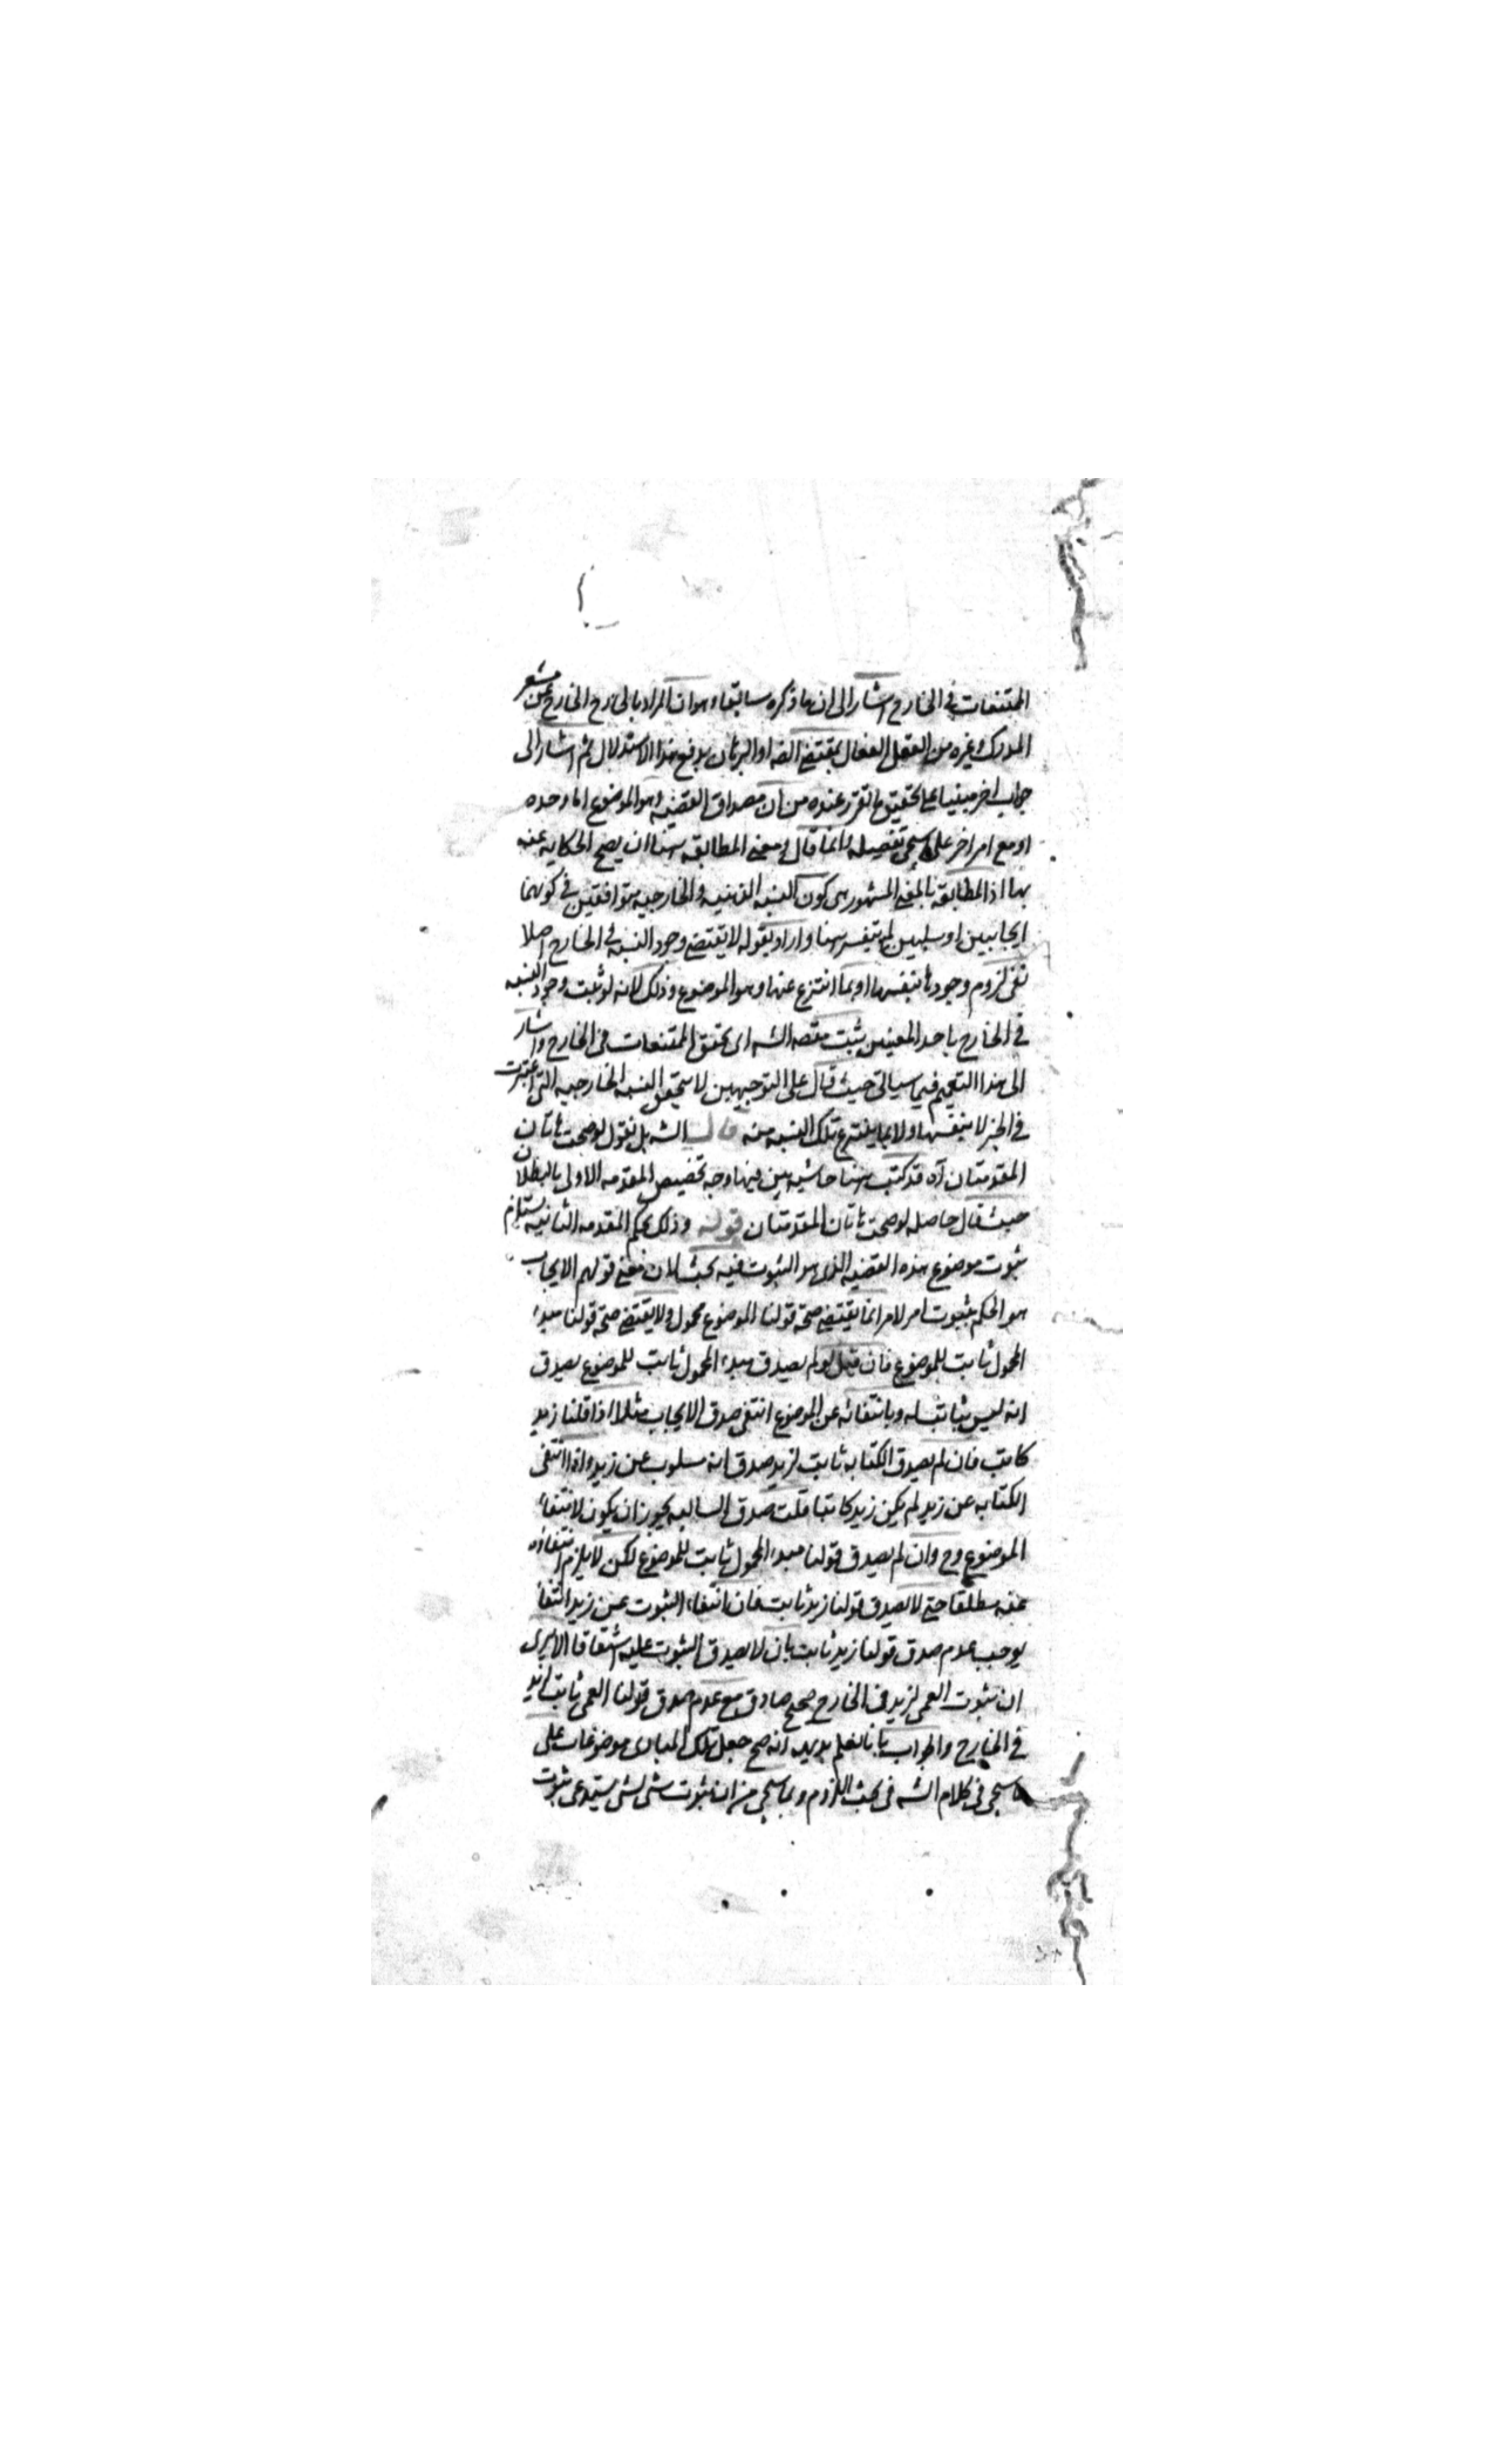 الممتنعات في الخارج اشار الى ان ما ذكره سابقا وهو ان المراد بالخارج الخارج عن مشعر
المدرك وغيره من العقل الفعال بمقتضى الضرورة او البرهان يدفع هذا الاستدلال ثم اشار الى
جواب اخر مبنيا على تحقيق ما تقرر عنده من ان مصداق القضيه هو الموضوع اما وحده
او مع امر اخر على ما سيجي تفصيله وانما قال معنى المطابقه هنا ان يصح الحكايه عنه
بها اذ المطابقه بالمعنى المشهور هى كون النسبه الذهنيه والخارجيه متوافقتين في كونهما
ايجابيين او سلبيين لم يتفسر هنا واراد بقوله لا يقتضى وجود النسبه في الخارج اصلا
نفى لزوم وجودها بنفسها او بما انتزع عنها وهو الموضوع وذلك لانه لو ثبت وجود النسبه
في الخارج باحد المعنيين يثبت مقصد الشه اى تحقق الممتنعات فى الخارج واشار
الى هذا التعميم فيما سيأتى حيث قال على التوجيهين لا يتحقق النسبه الخارجيه التى اعتبرت
في الخبر لا بنفسها ولا بما ينتزع تلك النسبه منه قال الشه بل نقول لو صحت هاتان
المقدمتان آه قد كتب هنا حاشيه بين فيها وجه تخصيص المقدمه الاولى بالبطلان
حيث قال حاصله لو صحت هاتان المقدمتان قوله وذلك بحكم المقدمه الثانيه يستلزم
ثبوت موضوع هذه القضيه الذى هو الثبوت فيه بحث لان معنى قولهم الايجاب
هو الحكم بثبوت امر لامر انما يقتضى صحة قولنا الموضوع محمول ولا يقتضى صحة قولنا مبدء
المحمول ثابت للموضوع فان قيل لو لم يصدق مبدء المحمول ثابت للموضوع يصدق
انه ليس بثابت له وبانتفائه عن الموضوع انتفى صدق الايجاب مثلا اذا قلنا زيد
كاتب فان لم يصدق الكتابه ثابت لزيد صدق انه مسلوب عن زيد واذا انتفى
الكتابه عن زيد لم يكن زيد كاتبا قلت صدق السالبه يجوز ان يكون لانتفاء
الموضوع وح وان لم يصدق قولنا مبدء المحمول ثابت للموضوع لكن لا يلزم انتفاؤه
عنه مطلقا حتى لا يصدق قولنا زيد ثابت فان انتفاء الثبوت عن زيد انتفاء
يوجب عدم صدق قولنا زيد ثابت بان لا يصدق الثبوت عليه اشتقاقا الا يرى
ان ثبوت العمى لزيد فى الخارج صحيح صادق مع عدم صدق قولنا العمى ثابت لزيد
في الخارج والجواب بانا نعلم بديهه انه صح جعل تلك المبادى موضوعات على
ما سيجى فى كلام الشه فى بحث اللزوم وبما سيجى من ان ثبوت شى لشى يستدعى ثبوت